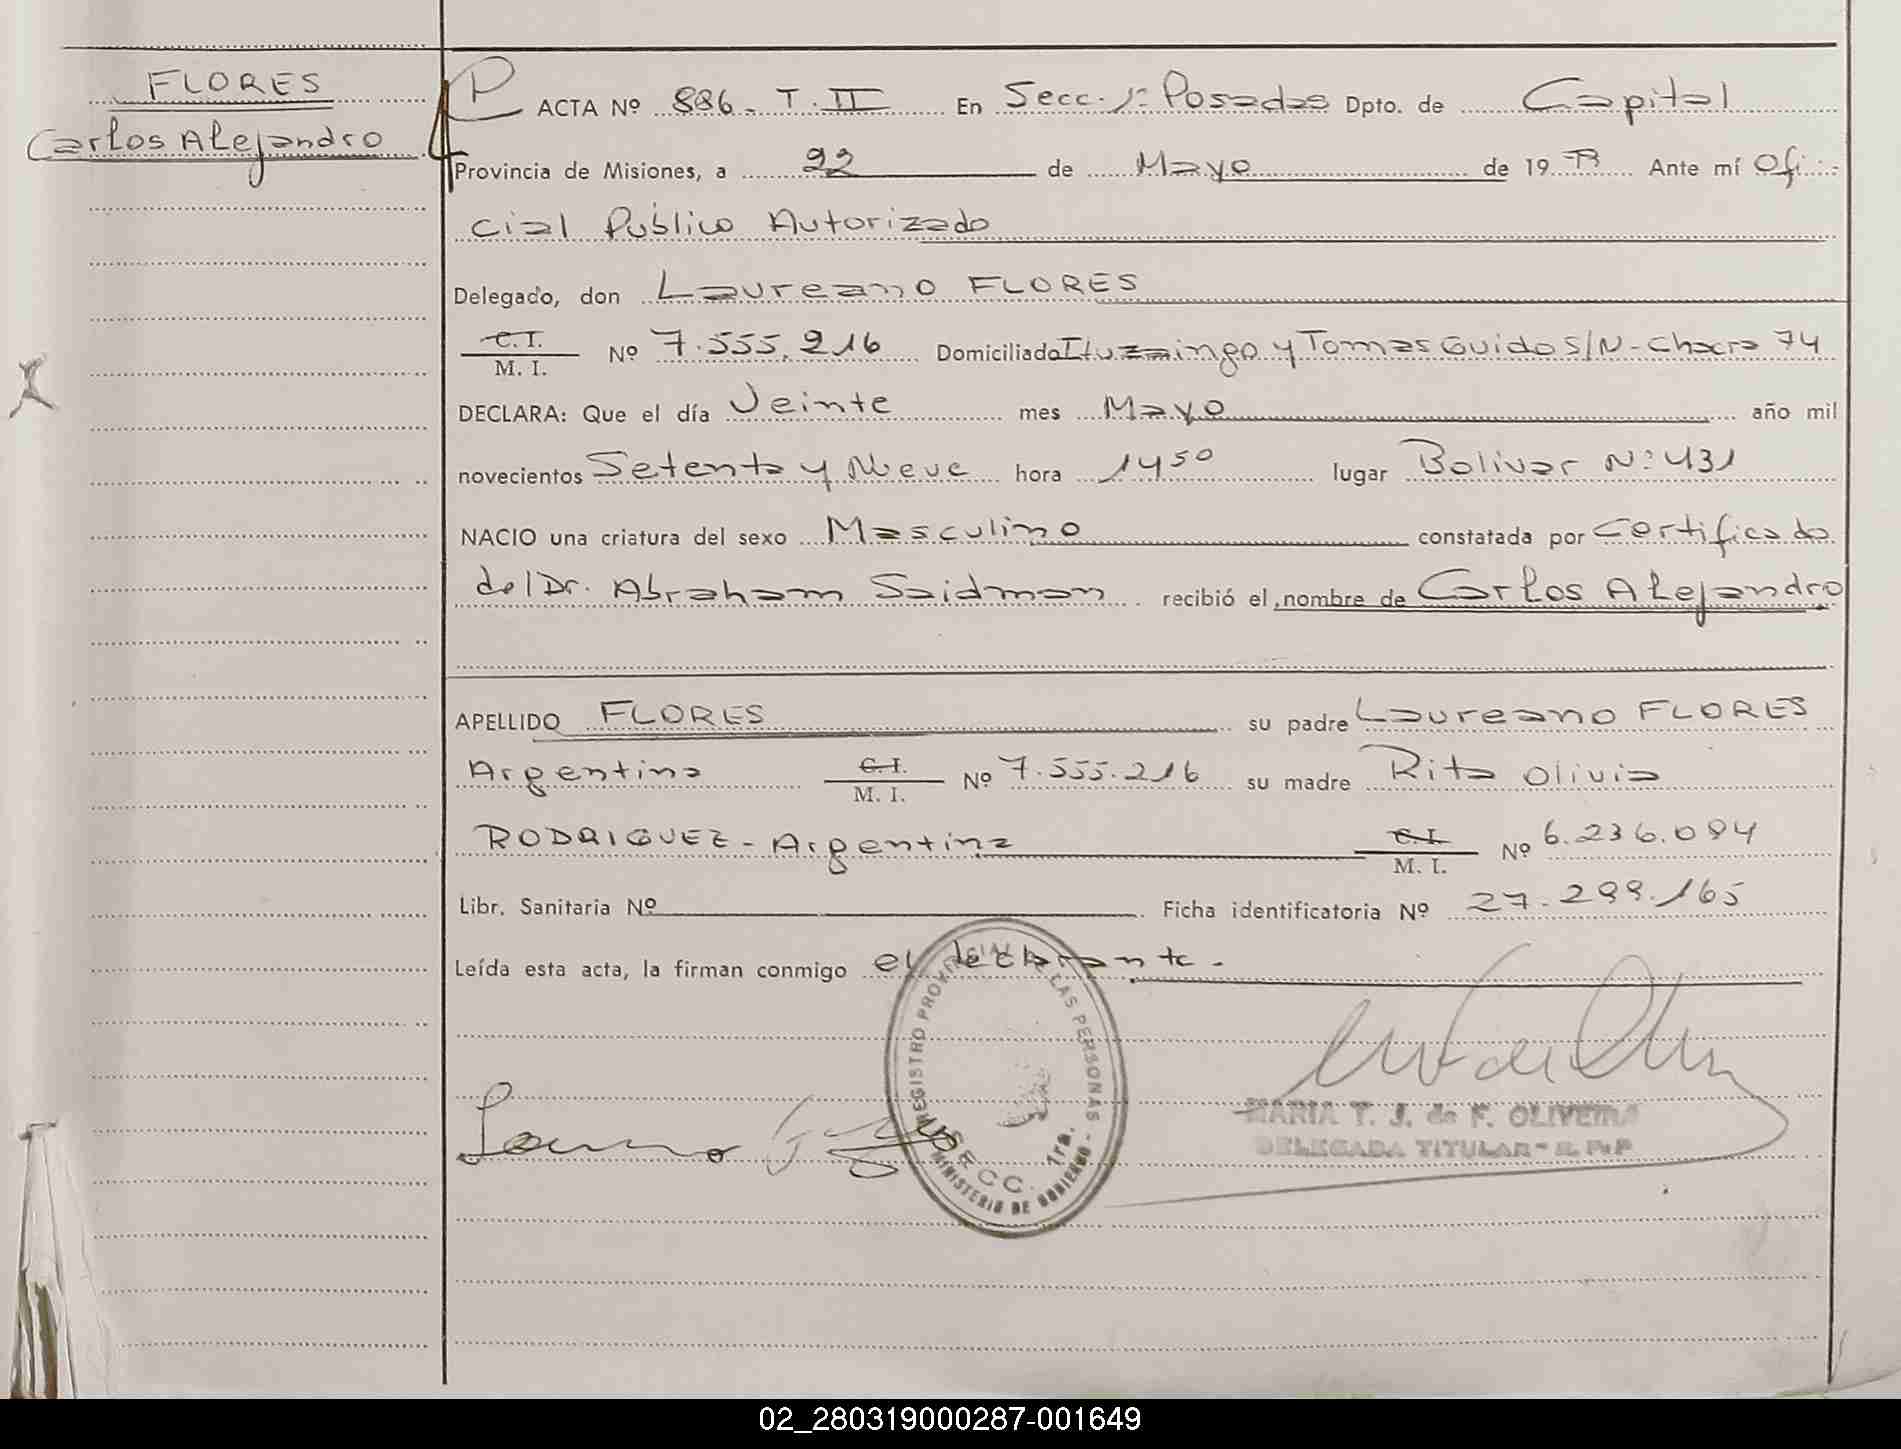 FLORES
Carlos Alejandro
P
ACTA Nº 886 - T. II En Secc. 1ª Posadas Dpto. de Capital
Provincia de Misiones, a 22 de Mayo de 19 Ante mí Ofi-
cial Público Autorizado
Delegado, don Laureano FLORES
C.I. / M. I. Nº 7.555.216 Domiciliado Ituzaingo y Tomas Guido S/N - Chacra 74
DECLARA: Que el día Veinte mes Mayo año mil
novecientos Setenta y Nueve hora 14 50 lugar Bolivar Nº 431
NACIO una criatura del sexo Masculino constatada por Certificado
del Dr. Abraham Saidman recibió el nombre de Carlos Alejandro
APELLIDO FLORES su padre Laureano FLORES
Argentina C.I. / M. I. Nº 7.555.216 su madre Rita Olivia
RODRIGUEZ - Argentina C.I. / M. I. Nº 6.236.094
Libr. Sanitaria Nº Ficha identificatoria Nº 27.299.165
Leída esta acta, la firman conmigo el declarante.
REGISTRO PROVINCIAL DE LAS PERSONAS
SECC. 1ra.
MINISTERIO DE GOBIERNO
MARIA T. J. de F. OLIVEIRA
DELEGADA TITULAR - R. P. P
02_280319000287-001649